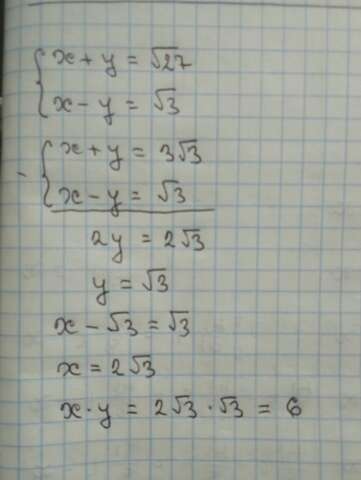 x + y = √27
x - y = √3
- x + y = 3√3
x - y = √3
2y = 2√3
y = √3
x - √3 = √3
x = 2√3
x · y = 2√3 · √3 = 6